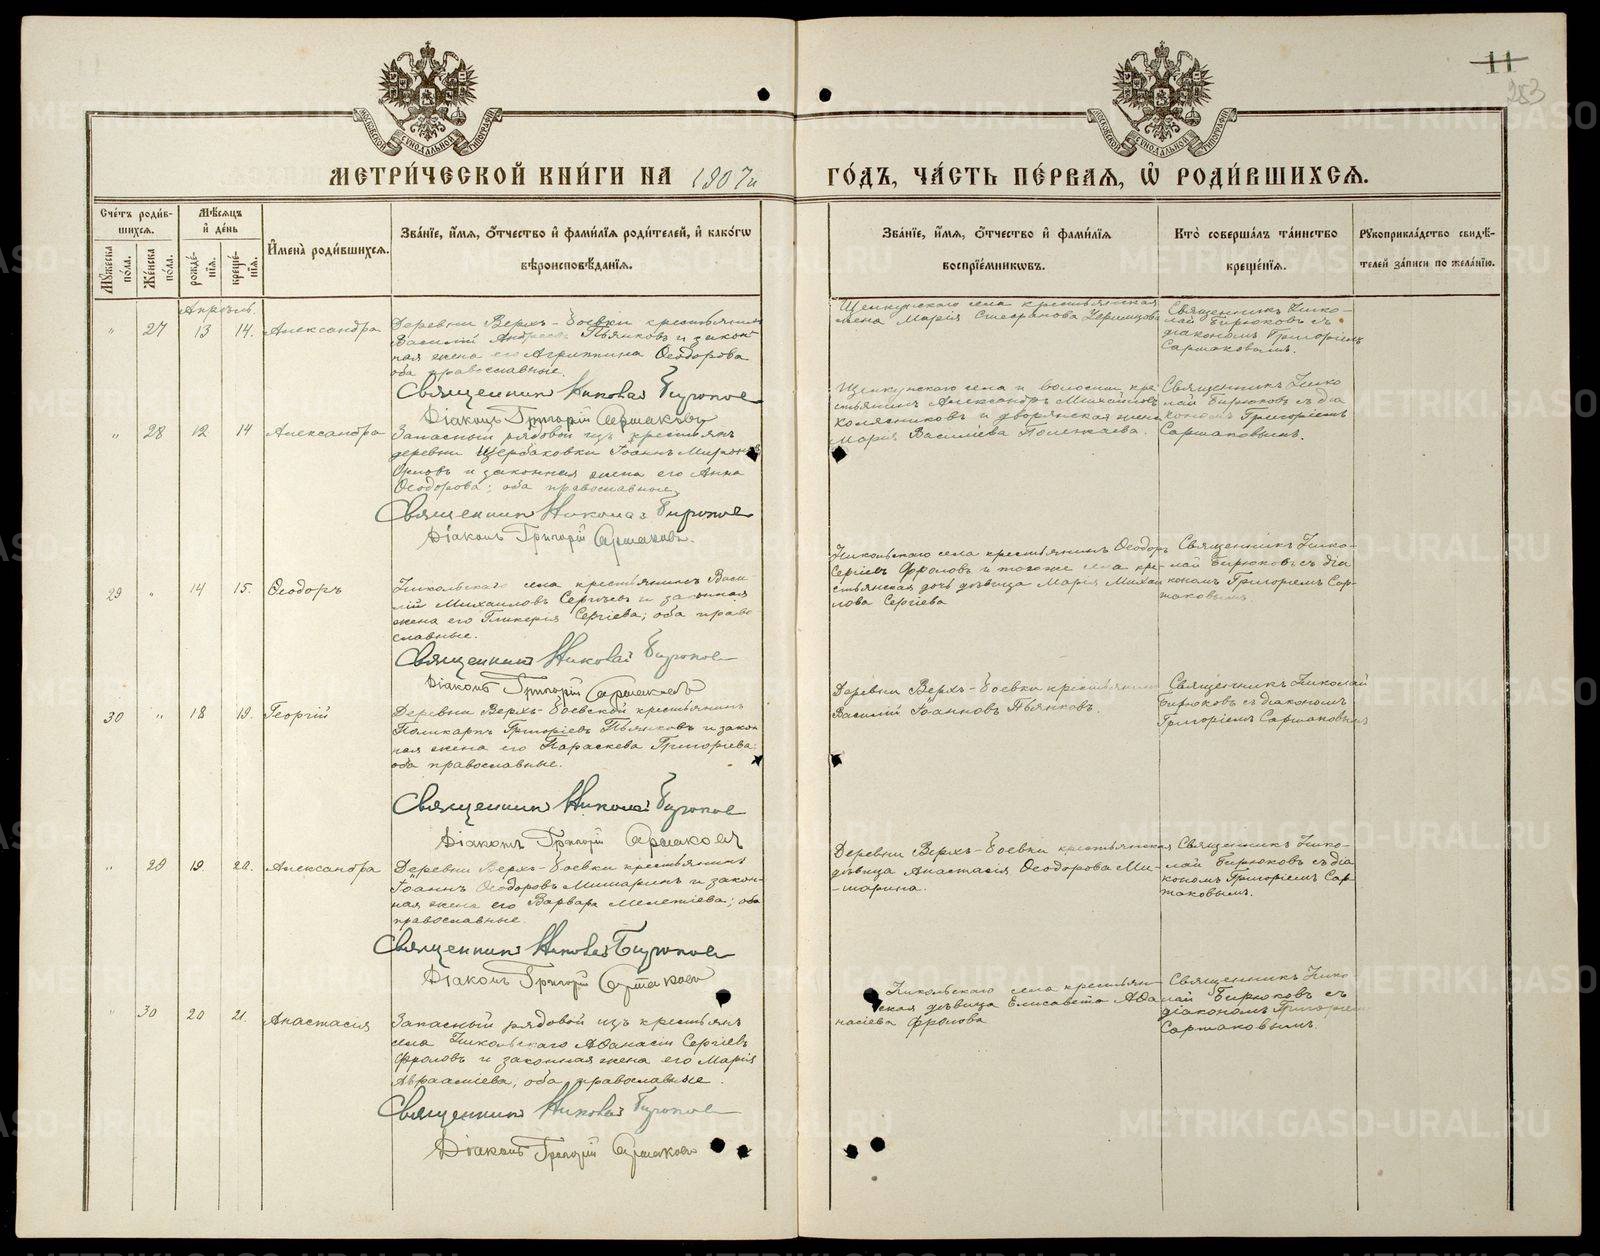 11
253
МЕТРИ́ЧЕСКОЙ КНИ́ГИ НА 1907й ГО́ДЪ, ЧА́СТЬ ПЕ́РВАЯ, Ѡ҆ РОДИ́ВШИХСѦ.
Сче́тъ роди́в-
шихсѧ.
Мꙋ́жеска по́ла.
Же́нска по́ла.
Мѣ́сѧцъ
и҆ де́нь
рожде́-
нїѧ.
креще́-
нїѧ.
И҆мена̀ роди́вшихсѧ.
Зва́нїе, и҆́мѧ, ѻ҆́тчество и҆ фами́лїѧ роди́телей, и҆ како́гѡ
вѣроисповѣ́данїѧ.
Зва́нїе, и҆́мѧ, ѻ҆́тчество и҆ фами́лїѧ
воспрїе́мникѡвъ.
Кто̀ соверша́лъ та́инство
креще́нїѧ.
Рꙋкоприкла́дство свидѣ́-
телей за́писи по жела́нїю.
Апрѣль.
" 27 13 14. Александра
Деревни Верхъ-Боевки крестьянинъ
Василій Андреевъ Пьянковъ и закон-
ная жена его Агриппина Ѳеодорова
оба православные.
Священникъ Николай Бирюковъ
Діаконъ Григорій Сармаковъ
Щелкунскаго села крестьянская
жена Марія Стефанова
Священникъ Нико-
лай Бирюковъ съ
діакономъ Григоріемъ
Сармаковымъ.
" 28 12 14 Александра
Запасный рядовой изъ крестьянъ
деревни Щербаковки Іоаннъ Мироновъ
Орловъ и законная жена его Анна
Ѳеодорова; оба православные.
Священникъ Николай Бирюковъ
Діаконъ Григорій Сармаковъ.
Щелкунскаго села и волости кре-
стьянинъ Александръ Михайловъ
Колясниковъ и дворянская жена
Марія Василіева Полежаева.
Священникъ Нико
лай Бирюковъ съ діа
кономъ Григоріемъ
Сармаковымъ.
29 " 14 15. Ѳеодоръ
Никольскаго села крестьянинъ Васи
лій Михаиловъ Сергѣевъ и законная
жена его Гликерія Сергіева; оба право-
славные.
Священникъ Николай Бирюковъ
Діаконъ Григорій Сармаковъ
Никольскаго села крестьянинъ Ѳеодоръ
Сергіевъ Фроловъ и тогоже села кре-
стьянская дочь дѣвица Марія Михаи
лова Сергіева
Священникъ Нико-
лай Бирюковъ съ діа
кономъ Григоріемъ Сар-
маковымъ.
30 " 18 19. Георгій
Деревни Верхъ-Боевской крестьянинъ
Поликарпъ Григоріевъ Пьянковъ и закон
ная жена его Параскева Григоріева;
оба православные.
Священникъ Николай Бирюковъ
Діаконъ Григорій Сармаковъ
Деревни Верхъ-Боевки крестьянинъ
Василій Іоанновъ Пьянковъ.
Священникъ Николай
Бирюковъ съ діакономъ
Григоріемъ Сармаковымъ
" 29 19. 20. Александра
Деревни Верхъ-Боевки крестьянинъ
Іоаннъ Ѳеодоровъ Мишаринъ и закон-
ная жена его Варвара Мелетіева; оба
православные.
Священникъ Николай Бирюковъ
Діаконъ Григорій Сармаковъ
Деревни Верхъ-Боевки крестьянская
дѣвица Анастасія Ѳеодорова Ми-
шарина.
Священникъ Нико-
лай Бирюковъ съ діа
кономъ Григоріемъ Сар-
маковымъ.
" 30 20 21. Анастасія
Запасный рядовой изъ крестьянъ
села Никольскаго Аѳанасій Сергіевъ
Фроловъ и законная жена его Марія
Авраамiева, оба православные.
Священникъ Николай Бирюковъ
Діаконъ Григорій Сармаковъ
Никольскаго села крестьян-
ская дѣвица Елисавета Аѳа
насіева Фролова
Священникъ Нико
лай Бирюковъ съ
діакономъ Григоріемъ
Сармаковымъ.
METRIKI.GASO-URAL.RU